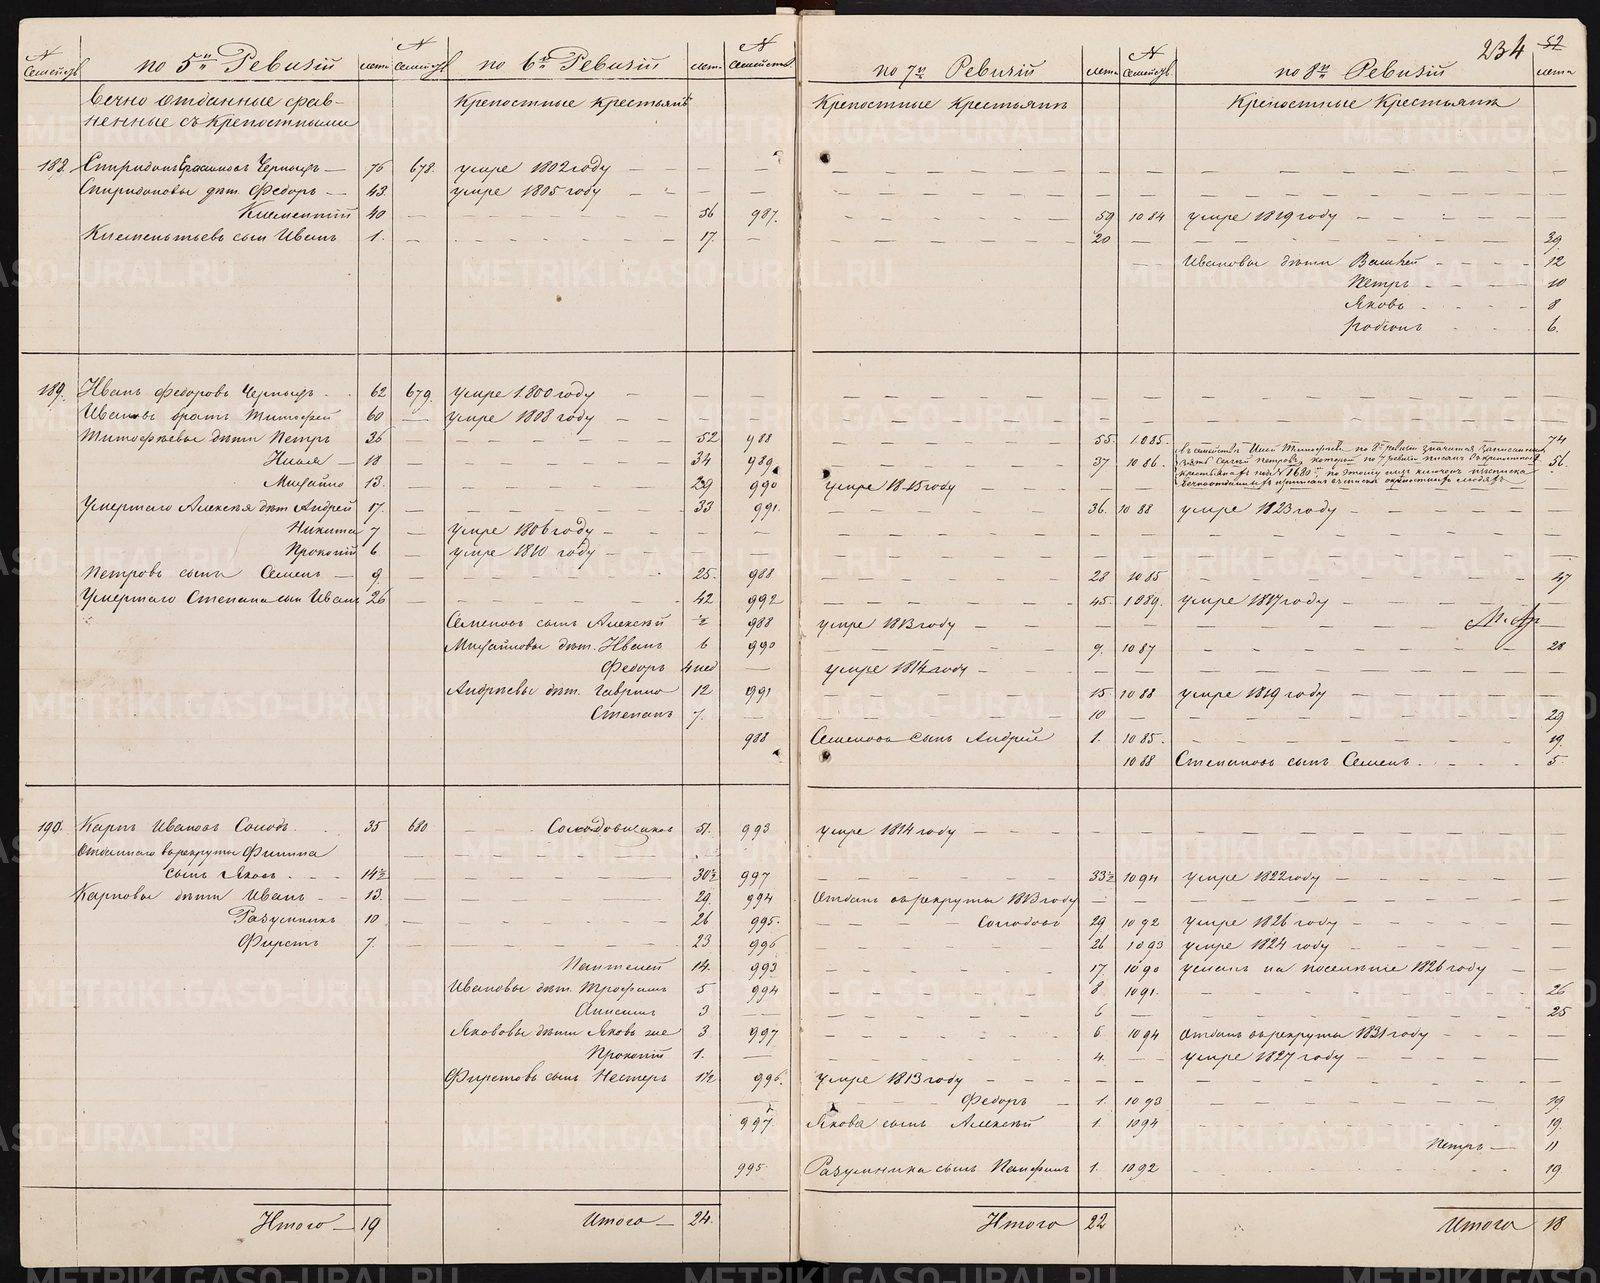 234 52
N Семейст. по 5й Ревизiи лета N Семейст. по 6й Ревизiи лета N Семейств. по 7й Ревизiи лета N Семейст. по 8й Ревизiи лета
Вечно отданные срав- Крепостные крестьяне Крепостные Крестьяне Крепостные Крестьяне
ненные съ крепостными
188. Спиридонъ Черныхъ — 76 678. умре 1802 году
Спиридоновы дѣт. Федоръ — 43 умре 1805 году
Климентiй 40 56 987. 59 1084 умре 1819 году
Климентьевъ сынъ Иванъ 1. 17. 20 39.
Ивановы дѣти 12
Петръ 10
Яковъ 8
Родiонъ 6.
189. Иванъ Федоровъ Черныхъ 62 679. умре 1800 году
Ивановъ братъ Тимофей 60 умре 1808 году
Тимофѣевы дѣти Петръ 36 52 988 55. 1085. 74
18 34 989. 37 1086. 56.
Михайло 13. 29 990 умре 1815 году
Умершаго Алексѣя дѣт. Андрей 17. 33 991. 36. 1088 умре 1823 году
Никита 7 умре 1806 году
Прокопiй 6 умре 1810 году
Петровъ сынъ Семенъ — 9. 25. 988 28 1085 47
Умершаго Степана сын Иванъ 26 42 992 45. 1089. умре 1817 году
Семеновъ сынъ Алексѣй ½ 988 умре 1813 году
Михайловы дѣт. Иванъ 6 990 9. 1087 28
Федоръ 4 нед умре 1814 году
Андрѣевы дѣт. Гаврило 12 991 15 1088 умре 1819 году
Степанъ 7. 10 29
988 Семеновъ сынъ Андрей 1. 1085. 19.
1088 Степановъ сынъ Семенъ 5.
190. Карпъ Ивановъ Солод. 35 680 51. 993 умре 1814 году
Отданнаго въ рекруты Филипа
сынъ Яковъ 14½ 30½ 997 33½ 1094 умре 1822 году
Карповы дѣти Иванъ 13. 29. 994 Отданъ въ рекруты 1813 году
Разумникъ 10 26 995. 29 1092 умре 1826 году
Фирстъ 7. 23 996 26 1093 умре 1824 году
Пантелей 14. 993 17. 1090 на поселенiе 1826 году
Ивановы дѣт. Трофимъ 5 994 8 1091. 26
Анисимъ 3 6 25
Яковлевы дѣти Яковъ же 3 997 6. 1094 Отданъ въ рекруты 1831 году
Прокопiй 1. 4. умре 1827 году
Фирстовъ сынъ Нестеръ 1½ 996. умре 1813 году
Федоръ 1. 1093 19.
997. Якова сынъ Алексѣй 1. 1094 19.
Петръ — 11
995. Разумника сынъ Панфилъ 1. 1092 19
Итого — 19 Итого — 24. Итого 22 Итого 18
METRIKI.GASO-URAL.RU